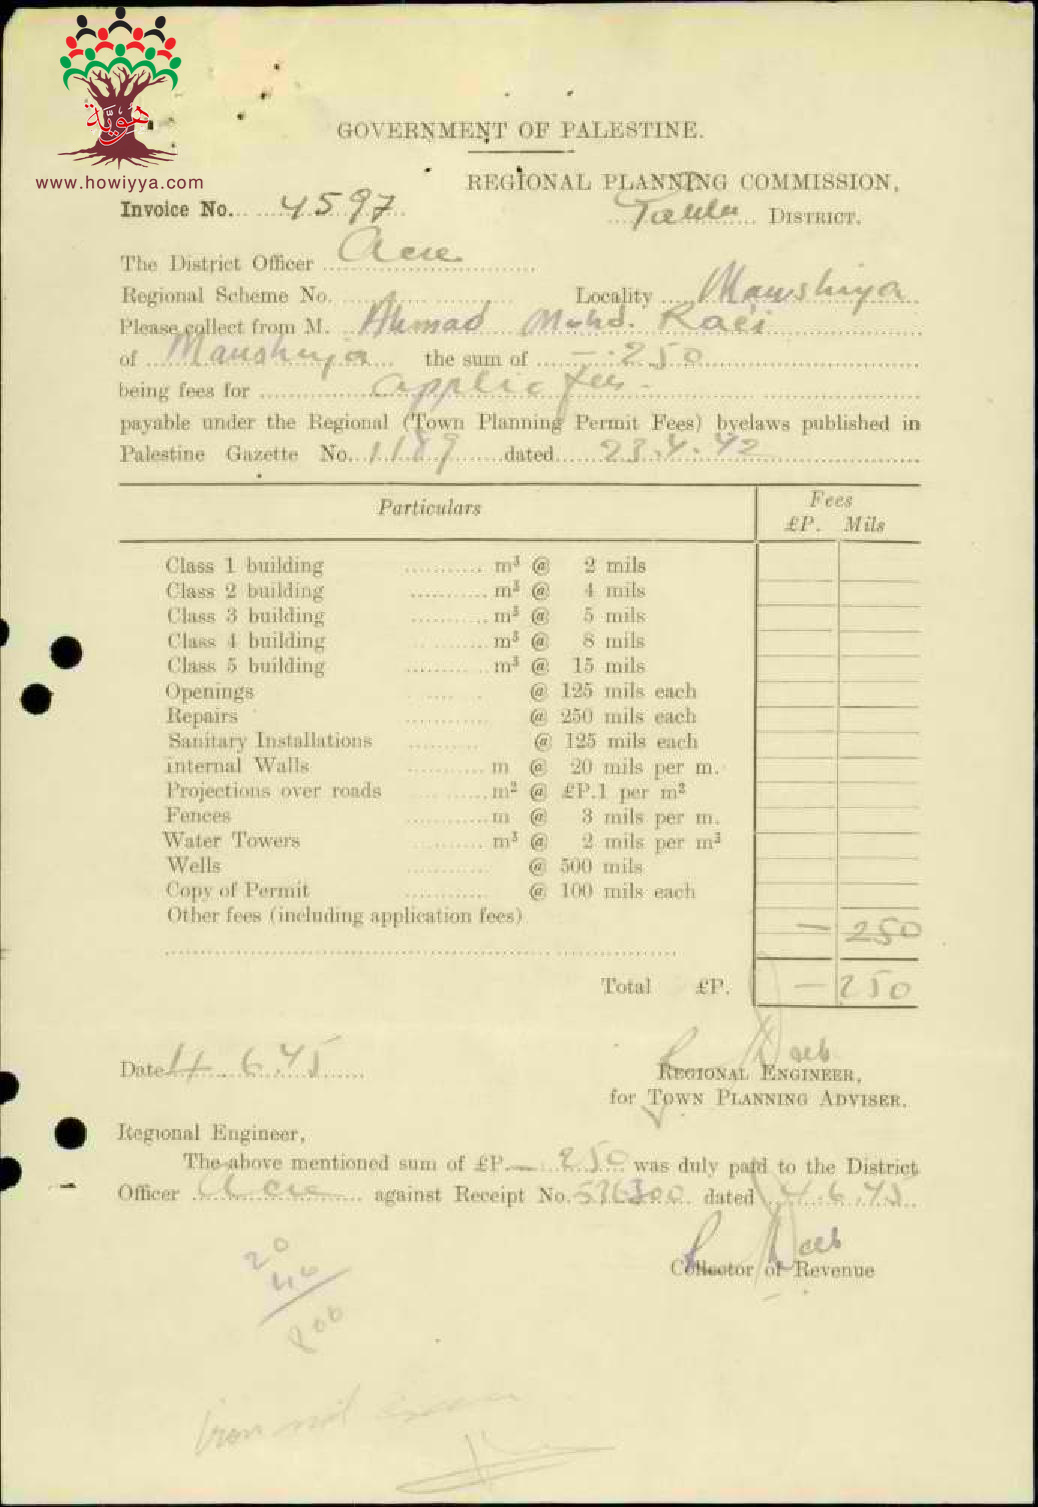 هويّة
www.howiyya.com
GOVERNMENT OF PALESTINE.
REGIONAL PLANNING COMMISSION,
Invoice No. 4597
DISTRICT.
The District Officer Acre
Regional Scheme No. Locality Manshiya
Please collect from M. Ahmad Mohd. Raei
of Manshiya the sum of -.250
being fees for applic fees -
payable under the Regional (Town Planning Permit Fees) byelaws published in
Palestine Gazette No. 1189 dated 23.4.42
Particulars Fees
£P. Mils
Class 1 building m³ @ 2 mils
Class 2 building m³ @ 4 mils
Class 3 building m³ @ 5 mils
Class 4 building m³ @ 8 mils
Class 5 building m³ @ 15 mils
Openings @ 125 mils each
Repairs @ 250 mils each
Sanitary Installations @ 125 mils each
internal Walls m @ 20 mils per m.
Projections over roads m² @ £P.1 per m²
Fences m @ 3 mils per m.
Water Towers m³ @ 2 mils per m³
Wells @ 500 mils
Copy of Permit @ 100 mils each
Other fees (including application fees) — 250
Total £P. — 250
Date 4.6.45
REGIONAL ENGINEER,
for TOWN PLANNING ADVISER.
Regional Engineer,
The above mentioned sum of £P.— 250 was duly paid to the District
Officer Acre against Receipt No. dated 4.6.45
Collector of Revenue
20
40
800